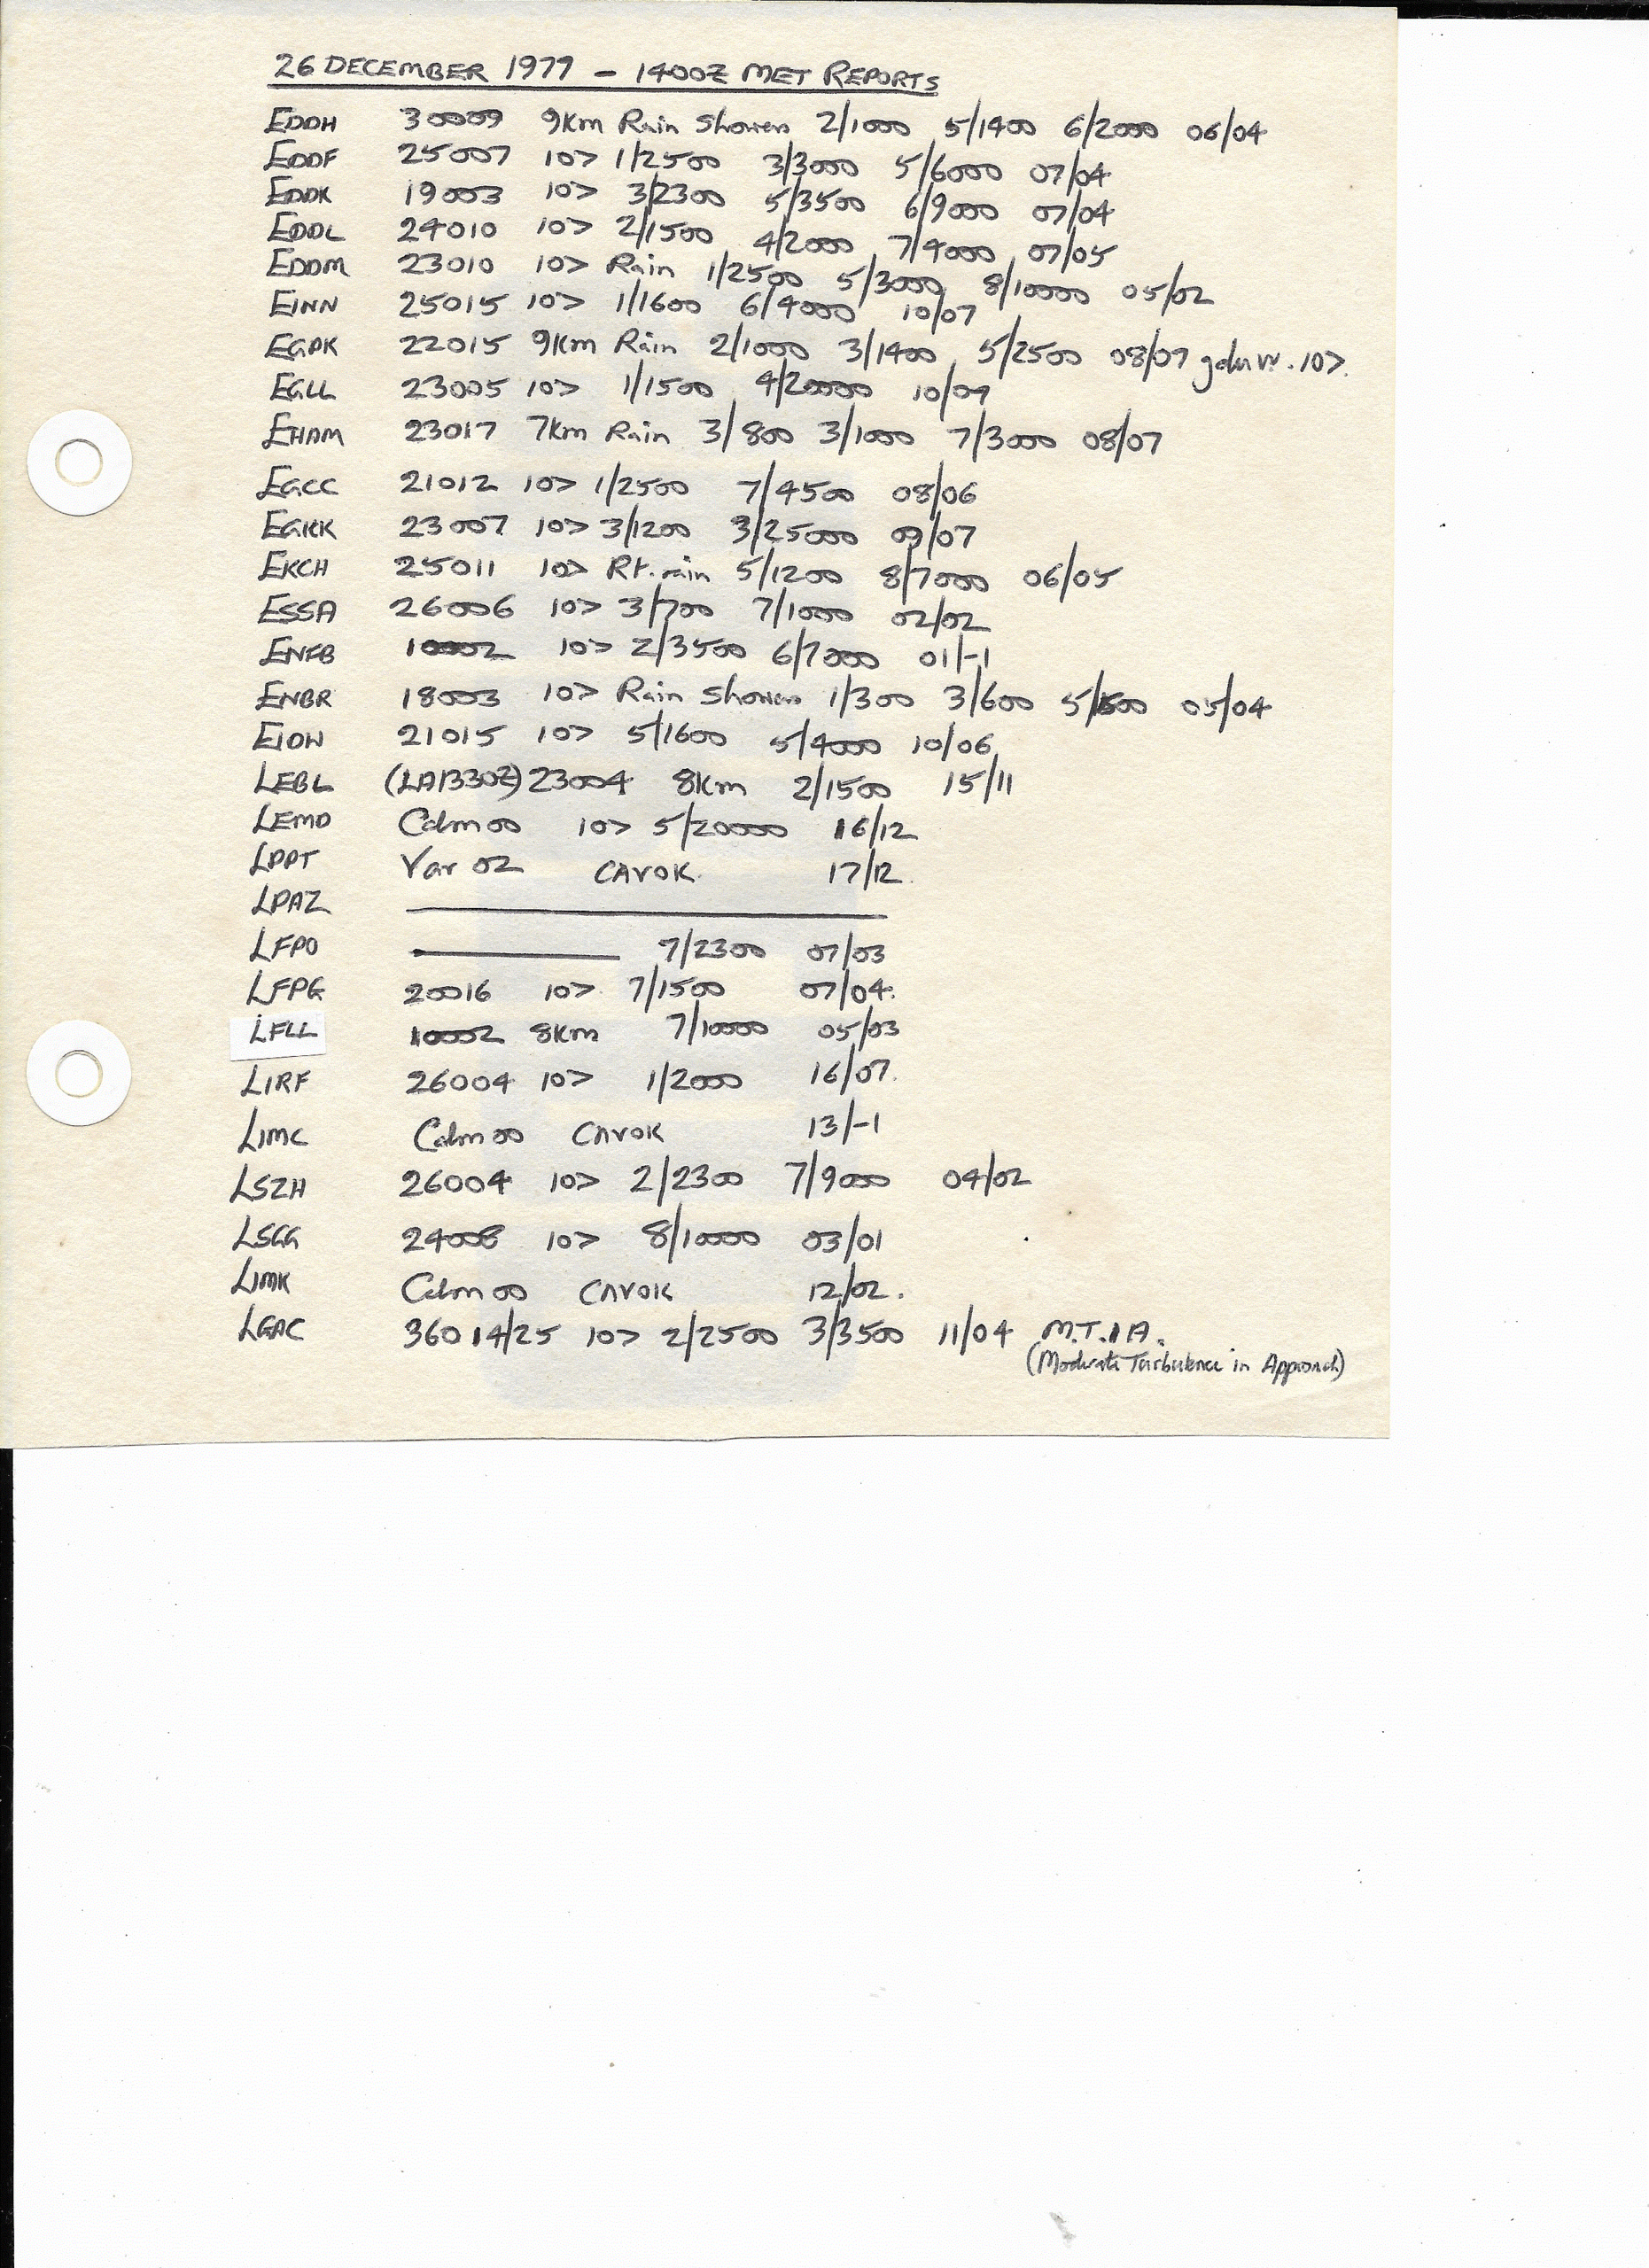 26 DECEMBER 1977 - 1400Z MET REPORTS
EDDH 30009 9Km Rain Showers 2/1000 5/1400 6/2000 06/04
EDDF 25007 10> 1/2500 3/3000 5/6000 07/04
EDDK 19003 10> 3/2300 5/3500 6/9000 07/04
EDDL 24010 10> 2/1500 4/2000 7/4000 07/05
EDDM 23010 10> Rain 1/2500 5/3000 8/10000 05/02
EINN 25015 10> 1/1600 6/4000 10/07
EGPK 22015 9Km Rain 2/1000 3/1400 5/2500 08/07 10>.
EGLL 23005 10> 1/1500 4/20000 10/07
EHAM 23017 7Km Rain 3/800 3/1000 7/3000 08/07
EGCC 21012 10> 1/2500 7/4500 08/06
EGKK 23007 10> 3/1200 3/25000 09/07
EKCH 25011 10> Rt. rain 5/1200 8/7000 06/05
ESSA 26006 10> 3/700 7/1000 02/02
ENFB 10002 10> 2/3500 6/7000 01/-1
ENBR 18003 10> Rain Showers 1/300 3/600 05/04
EIDW 21015 10> 5/1600 5/4000 10/06
LEBL (LA1330Z) 23004 8Km 2/1500 15/11
LEMD Calm 00 10> 5/20000 16/12
LPPT Var 02 CAVOK 17/12
LPAZ
LFPO 7/2300 07/03
LFPG 20016 10> 7/1500 07/04.
LFLL 10002 8Km 7/10000 05/03
LIRF 26004 10> 1/2000 16/07.
LIMC Calm 00 CAVOK 13/-1
LSZH 26004 10> 2/2300 7/9000 04/02
LSGG 24008 10> 8/10000 03/01
LIMK Calm 00 CAVOK 12/02.
LGAC 36014/25 10> 2/2500 3/3500 11/04 M.T.I A.
(Moderate Turbulence in Approach)